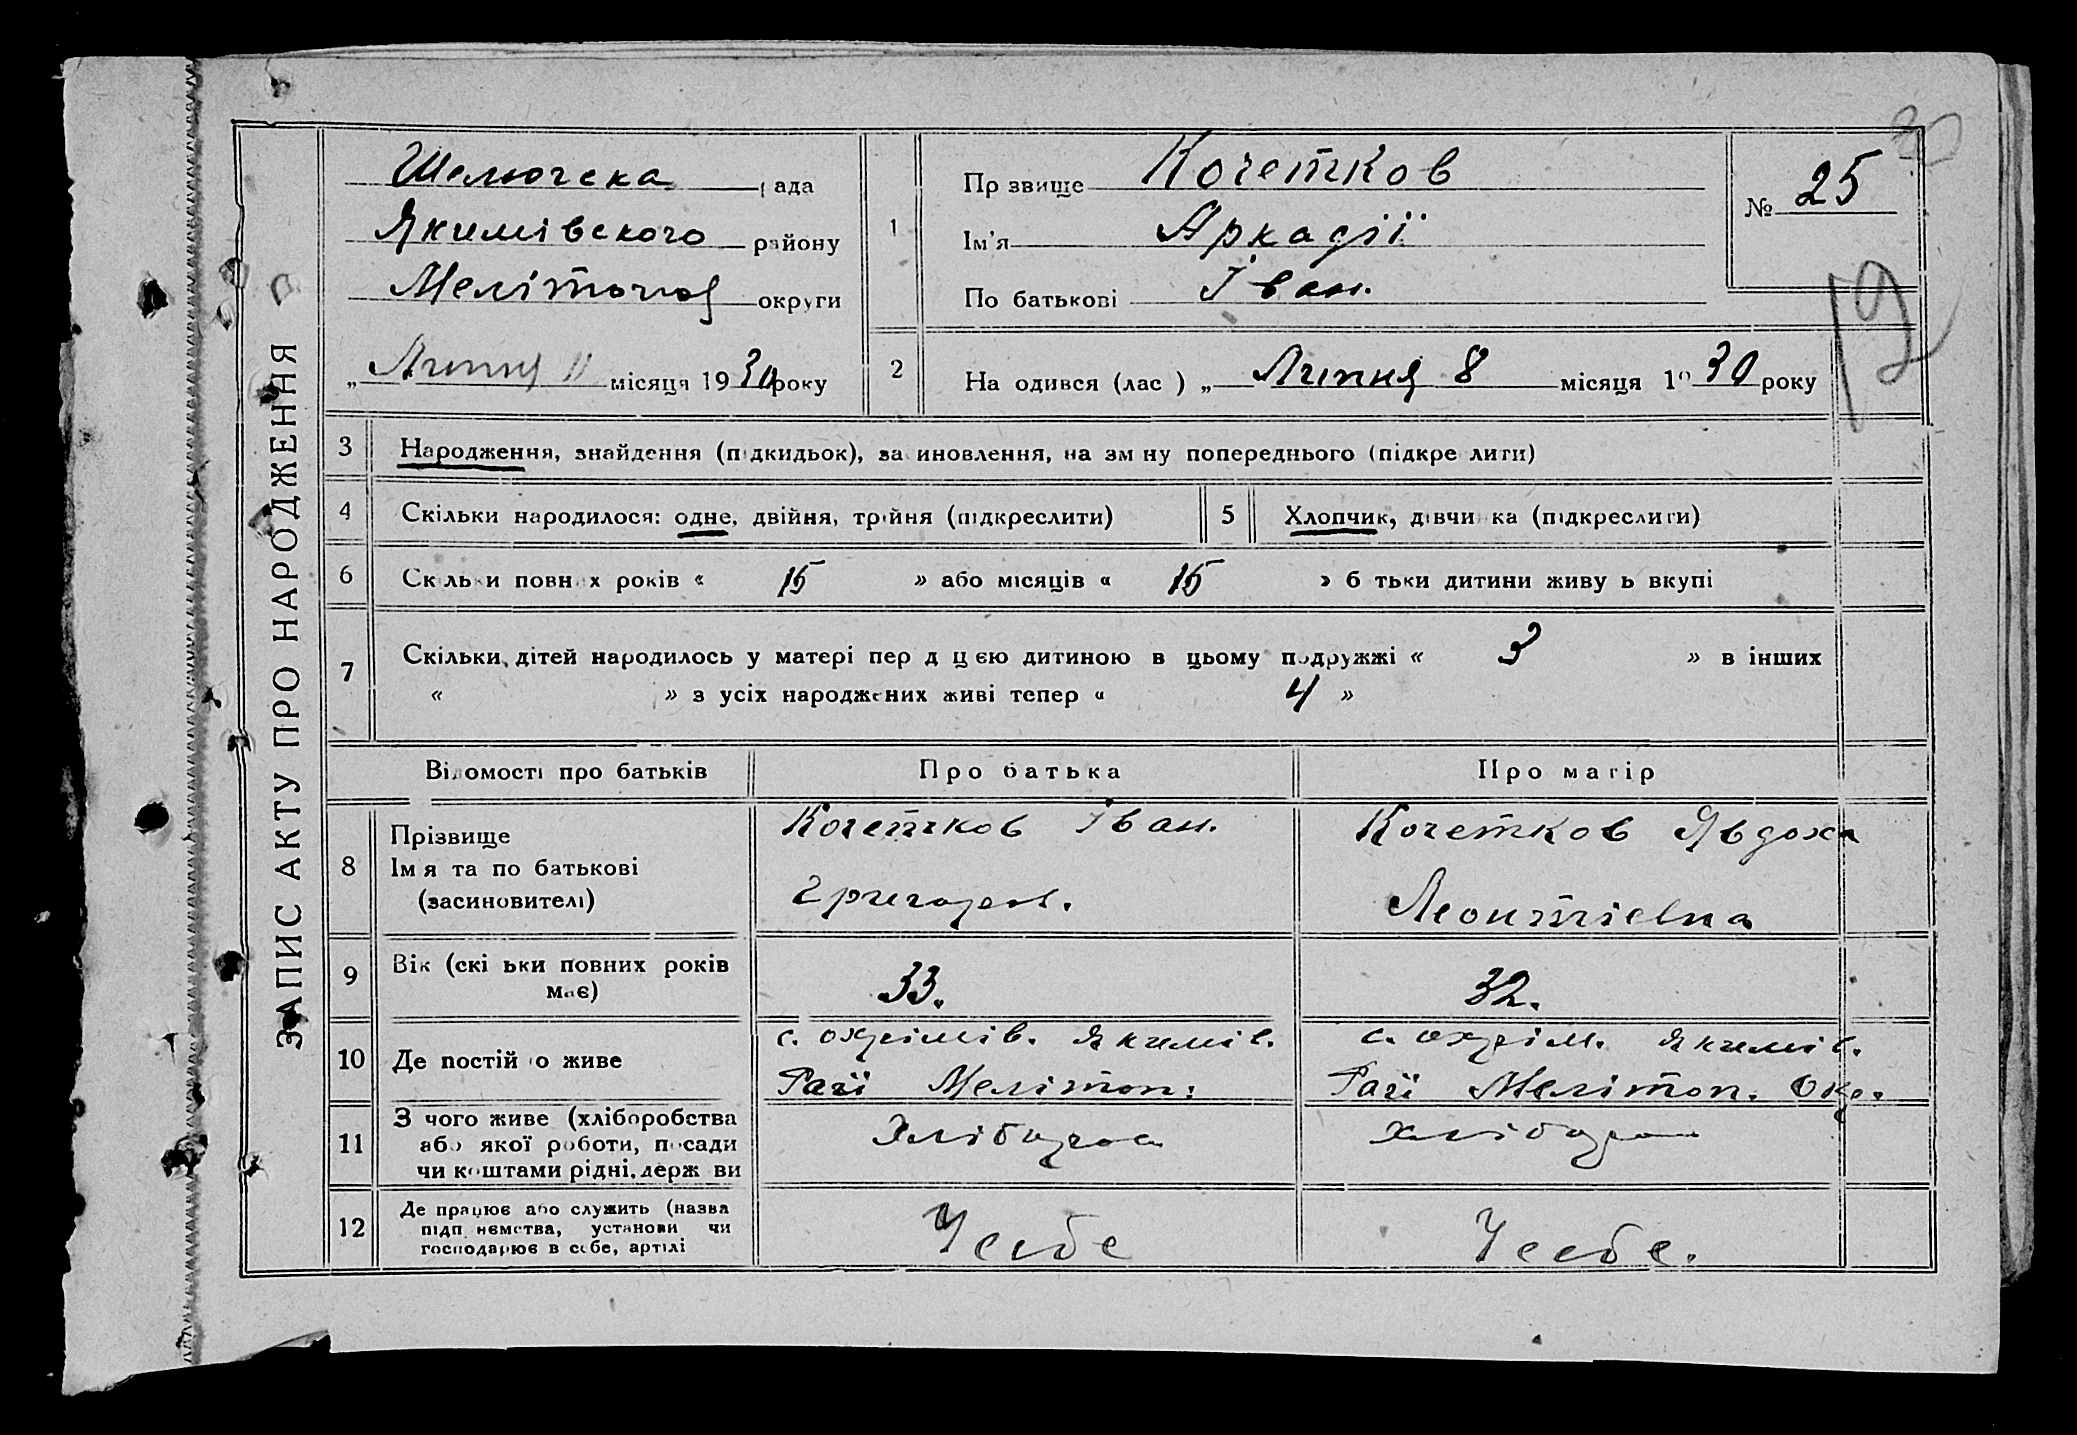 ЗАПИС АКТУ ПРО НАРОДЖЕННЯ
Шелючска рада
Якимівского району
Мелітопол округи
„Липня 11 місяця 1930 року
1
Пр звище Кочетков
Ім'я Аркадії
По батькові Іван.
№ 25
19
2
На одився (лас ) „ Липня 8 місяця 19 30 року
3 Народження, знайдення (підкидьок), за иновлення, на зм ну попереднього (підкре лити)
4 Скільки народилося: одне, двійня, трійня (підкреслити)
5 Хлопчик, дівчи ка (підкреслити)
6 Скільки повних років « 15 » або місяців « 15 » б тьки дитини живу ь вкупі
7 Скільки дітей народилось у матері пер д цією дитиною в цьому подружжі « 3 » в інших
« » з усіх народжених живі тепер « 4 »
Відомості про батьків Про батька Про матір
8 Прізвище
Ім я та по батькові
(засиновителі)
Кочетков Іван.
Григоров.
Кочетков Явдоха
Леонтіевна
9 Вік (скі ьки повних років
має)
33.
32.
10 Де постій о живе
с. охрімів. Якимів.
Рай Мелітоп:
с. охрім. Якимів.
Рай Мелітоп. Окр.
11 З чого живе (хліборобства
або якої роботи, посади
чи коштами рідні, держ ви
Хлібороб
Хлібороб
12 Де працює або служить (назва
підп ємства, установи чи
господарює в себе, артілі
У себе
У себе.